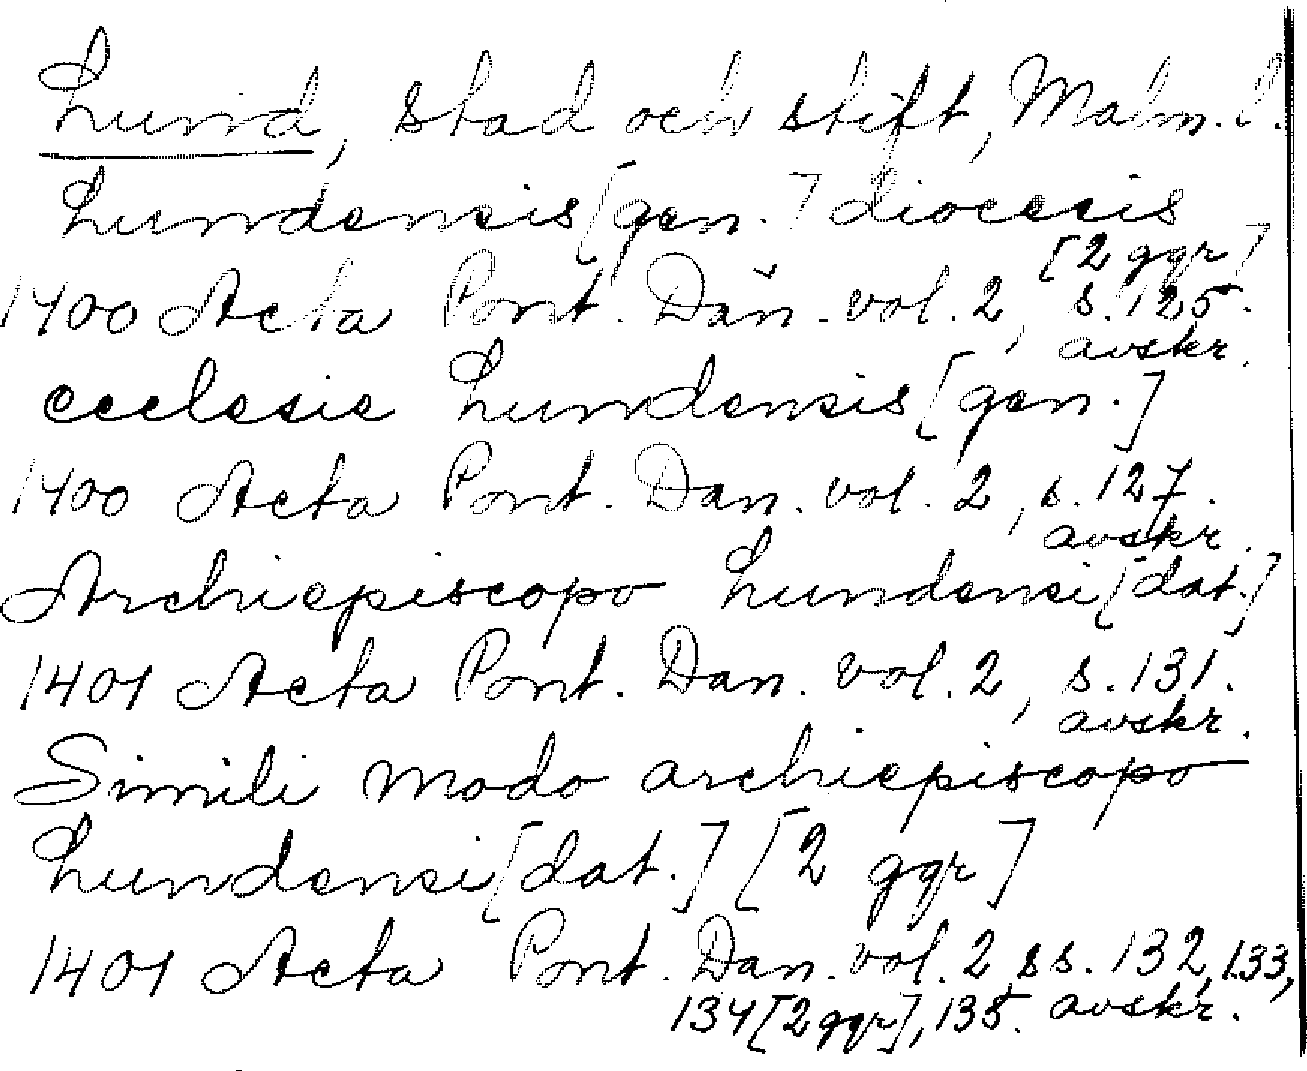 Lund, stad och stift, Malm. l.
Lundensis [gen.] diocesis
[2 ggr]
1400 Acta Pont. Dan. vol. 2, s. 125.
avskr.
ecclesie Lundensis [gen.]
1400 Acta Pont. Dan. vol. 2, s. 127.
avskr.
Archiepiscopo Lundensi [dat.]
1401 Acta Pont. Dan. vol. 2, s. 131.
avskr.
Simili modo archiepiscopo
Lundensi [dat.] [2 ggr]
1401 Acta Pont. Dan. vol. 2, ss. 132, 133,
134 [2 ggr], 135. avskr.